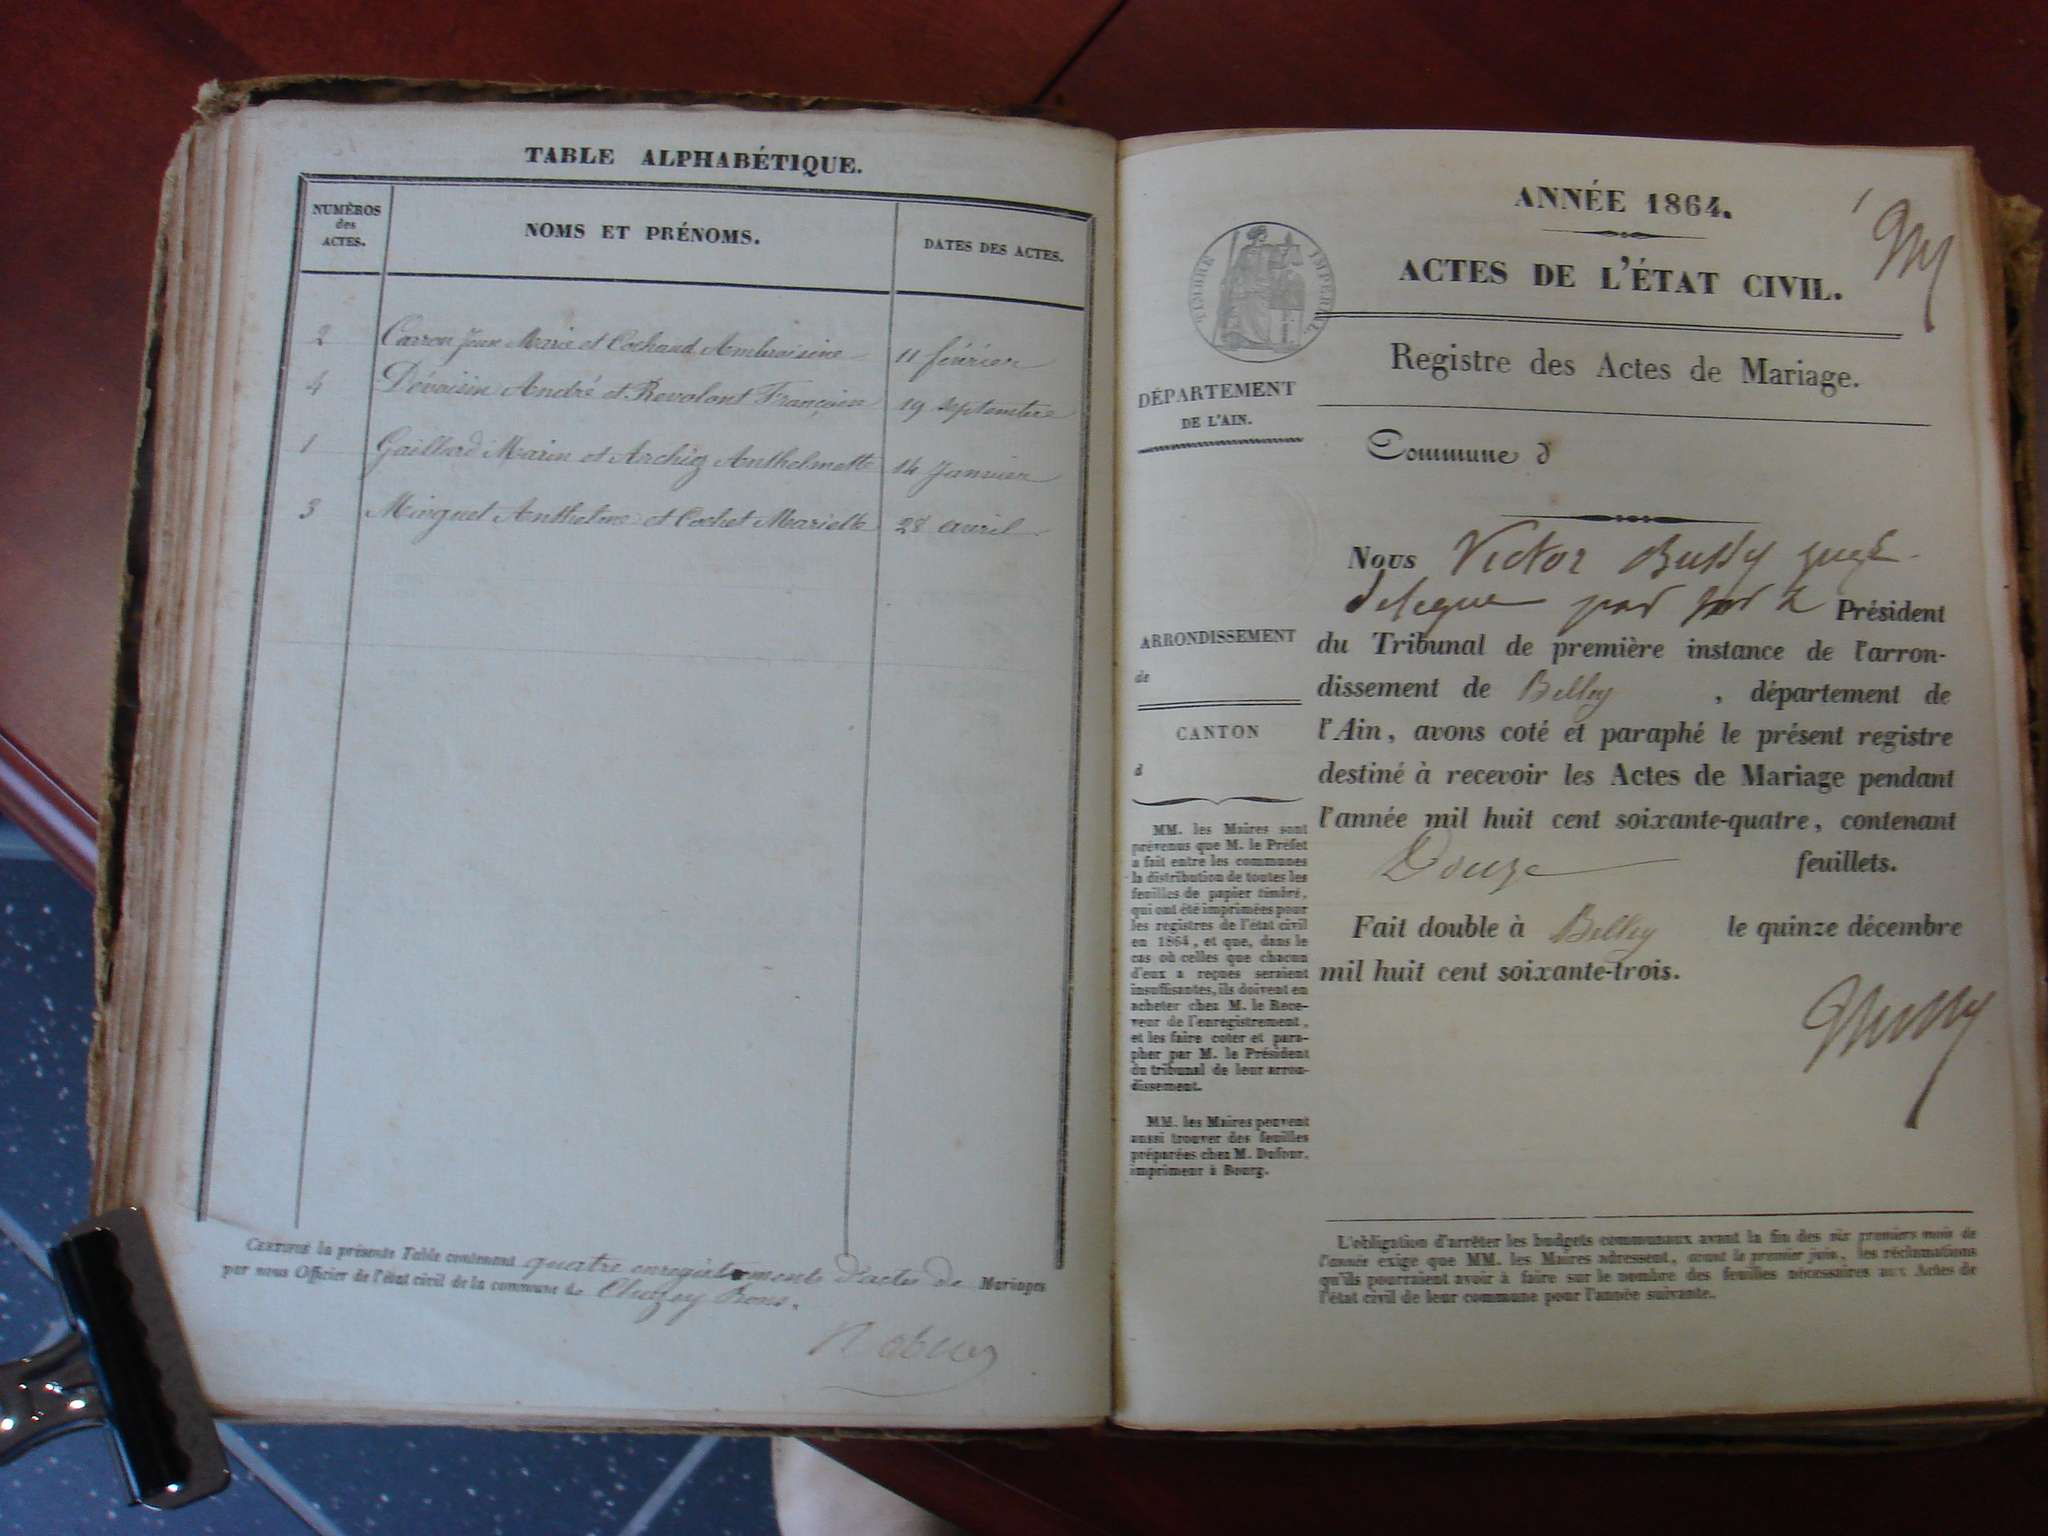 TABLE ALPHABÉTIQUE.
NUMÉROS
des
ACTES.
NOMS ET PRÉNOMS.
DATES DES ACTES.
2 Carron Jean Marie et Cochand Ambroisine 11 février
4 Dévoisin André et Revolont Françoise 19 septembre
1 Gaillard Marin et Archig Anthelmette 14 Janvier
3 Minguet Anthelme et Cochet Mariette 28 avril
CERTIFIÉ la présente Table contenant quatre enregistrements d'actes de Mariages
par nous Officier de l'état civil de la commune de Cheyzey Bons.
ANNÉE 1864.
ACTES DE L'ÉTAT CIVIL.
TIMBRE IMPÉRIAL
Registre des Actes de Mariage.
DÉPARTEMENT
DE L'AIN.
Commune d
ARRONDISSEMENT
de
CANTON
d
MM. les Maires sont
prévenus que M. le Préfet
a fait entre les communes
la distribution de toutes les
feuilles de papier timbré,
qui ont été imprimées pour
les registres de l'état civil
en 1864, et que, dans le
cas où celles que chacun
d'eux a reçues seraient
insuffisantes, ils doivent en
acheter chez M. le Rece-
veur de l'enregistrement,
et les faire coter et para-
pher par M. le Président
du tribunal de leur arron-
dissement.
MM. les Maires peuvent
aussi trouver des feuilles
préparées chez M. Dufour,
imprimeur à Bourg.
Nous Victor Bussy juge
delegue par Président
du Tribunal de première instance de l'arron-
dissement de Belley , département de
l'Ain, avons coté et paraphé le présent registre
destiné à recevoir les Actes de Mariage pendant
l'année mil huit cent soixante-quatre, contenant
Douze feuillets.
Fait double à Belley le quinze décembre
mil huit cent soixante-trois.
L'obligation d'arrêter les budgets communaux avant la fin des six premiers mois de
l'année exige que MM. les Maires adressent, avant le premier juin, les réclamations
qu'ils pourraient avoir à faire sur le nombre des feuilles nécessaires aux Actes de
l'état civil de leur commune pour l'année suivante.